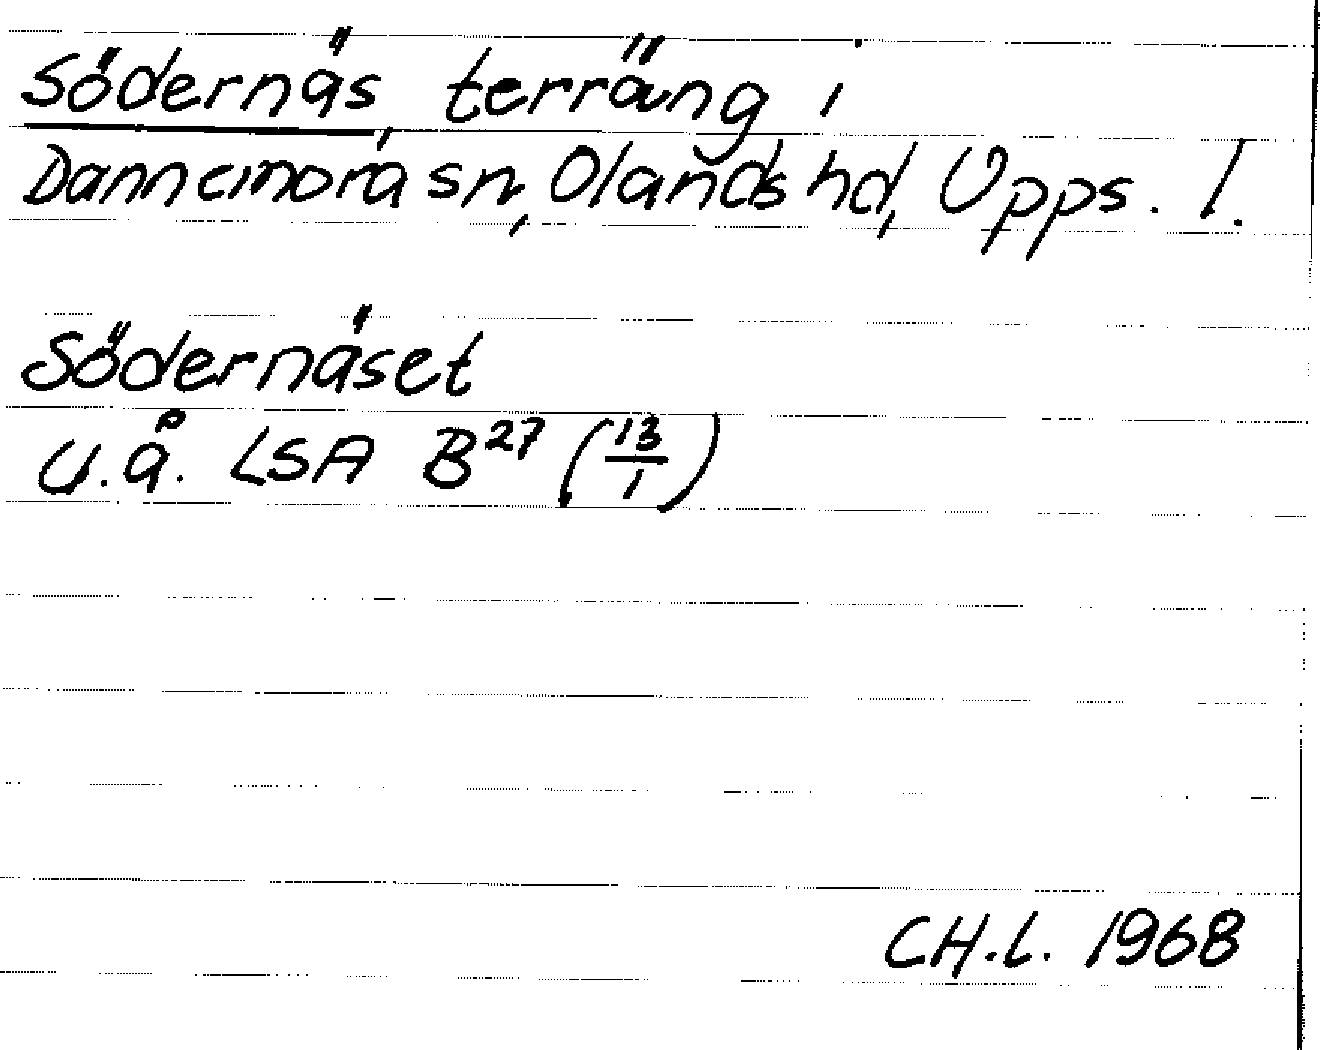 Södernäs terräng i
Dannemora sn, Olands hd, Upps. l.
Södernäset
U.å. LSA B²⁷ (13/1)
CH.L. 1968